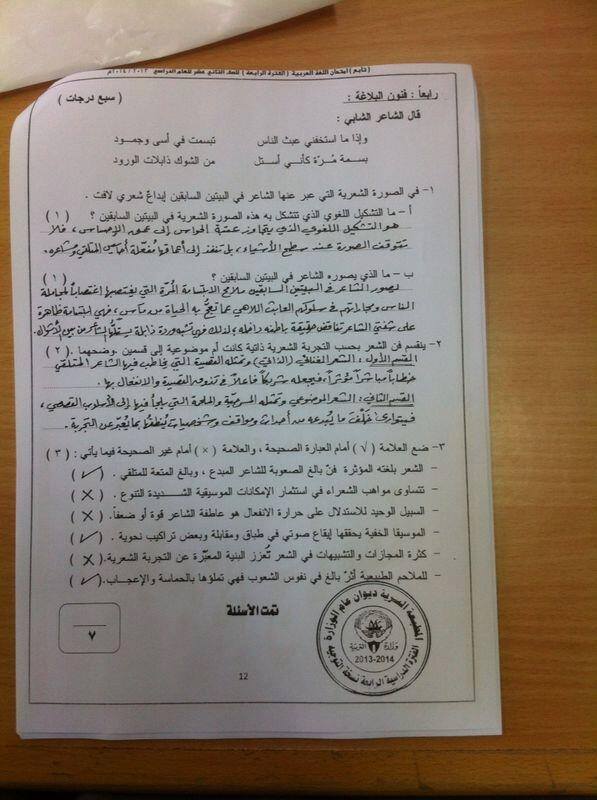 ( تابع ) امتحان اللغة العربية ( الفترة الرابعة ) للصف الثاني عشر للعام الدراسي ٢٠١٣ / ٢٠١٤م
رابعاً : فنون البلاغة : ( سبع درجات )
قال الشاعر الشابي :
وإذا ما استخفني عبث الناس تبسمت في أسى وجمود
بسمة مُرّة كأنـي أستل من الشوك ذابلات الورود
١- في الصورة الشعرية التي عبر عنها الشاعر في البيتين السابقين إبداعٌ شعري لافت .
أ – ما التشكيل اللغوي الذي تتشكل به هذه الصورة الشعرية في البيتين السابقين ؟ ( ١ )
هو التشكيل اللغوي الذي يتجاوز عتبة الحواس إلى عمق الإحساس ، فلا
تتوقف الصورة عند سطح الأشياء ، بل تنفذ إلى أعماقها مُفعّلة أحاسيس المتلقي ومشاعره .
ب – ما الذي يصوره الشاعر في البيتين السابقين ؟ ( ١ )
يصور الشاعر في البيتين السابقين ملامح الابتسامة المُرّة التي يغتصبها اغتصاباً لمجاملة
الناس ومجاراتهم في سلوكهم العابث اللاهي عما تعجُّ به الحياة من مآسٍ ، فهي ابتسامة ظاهرة
على شفتي الشاعر تناقض حقيقة باطنه وداخله ، لذلك فهي تشبه وردة ذابلة يستلها الشاعر من بين الأشواك .
٢- ينقسم فن الشعر بحسب التجربة الشعرية ذاتية كانت أم موضوعية إلى قسمين . وضحهما . ( ٢ )
القسم الأول : الشعر الغنائي ( الذاتي ) وتمثله القصيدة التي يخاطب فيها الشاعر المتلقي
خطاباً مباشراً مؤثراً ، فيجعله شريكاً فاعلاً في تذوقه القصيدة والانفعال بها .
القسم الثاني : الشعر الموضوعي وتمثله المسرحية والملحمة التي يلجأ فيها إلى الأسلوب القصصي ،
فيتوارى خَلْفَ ما يُبدعه من أحداث ومواقف وشخصيات يُنطقُها بما يُعبّر عن التجربة .
٣- ضع العلامة ( √ ) أمام العبارة الصحيحة ، والعلامة ( × ) أمام غير الصحيحة فيما يأتي : ( ٣ )
– الشعر بلغته المؤثرة فنّ بالغ الصعوبة للشاعر المبدع ، وبالغ المتعة للمتلقي . ( ✓ )
– تتساوى مواهب الشعراء في استثمار الإمكانات الموسيقية الشـديدة التنوع . ( × )
– السبيل الوحيد للاستدلال على حرارة الانفعال هو عاطفة الشاعر قوة أو ضعفاً . ( × )
– الموسيقا الخفية يحققها إيقاع صوتي في طباق ومقابلة وبعض تراكيب نحوية . ( ✓ )
– كثرة المجازات والتشبيهات في الشعر تُعزز البنية المعبّرة عن التجربة الشعرية . ( × )
– للملاحم الطبيعية أثرٌ بالغ في نفوس الشعوب فهي تملؤها بالحماسة والإعجاب . ( ✓ )
تمت الأسئلة
٧
المطبعة السرية ديوان عام الوزارة
وزارة التربية
2013-2014
الفترة الدراسية الرابعة
12